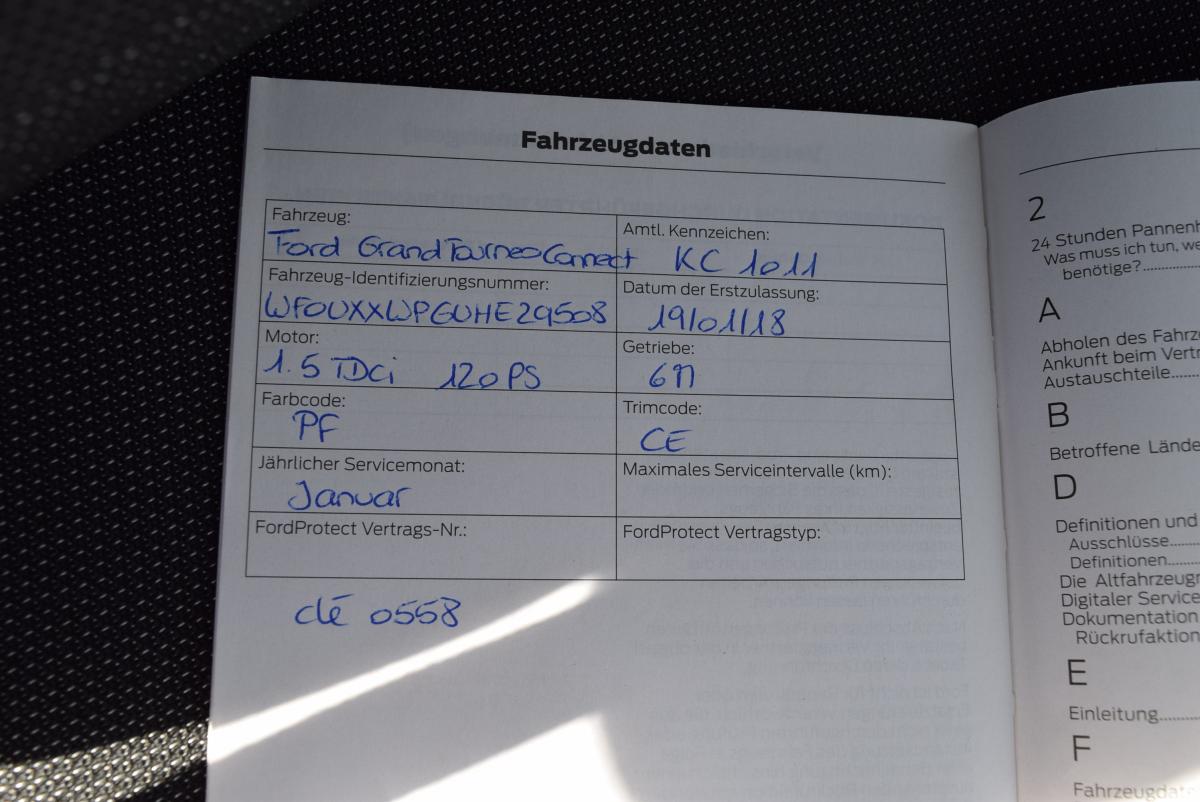 Fahrzeugdaten
Fahrzeug:
Ford Grand Tourneo Connect
Amtl. Kennzeichen:
KC 1011
Fahrzeug-Identifizierungsnummer:
WFOUXXWPGUHE29508
Datum der Erstzulassung:
19/01/18
Motor:
1.5 TDCi 120 PS
Getriebe:
Farbcode:
PF
Trimcode:
CE
Jährlicher Servicemonat:
Januar
Maximales Serviceintervalle (km):
FordProtect Vertrags-Nr.:
FordProtect Vertragstyp:
clé 0558
2
24 Stunden Pannenh
Was muss ich tun, we
benötige?
A
Abholen des Fahrze
Ankunft beim Vertr
Austauschteile
B
Betroffene Lände
D
Definitionen und
Ausschlüsse
Definitionen
Die Altfahrzeugr
Digitaler Service
Dokumentation
Rückrufaktion
E
Einleitung
F
Fahrzeugdat